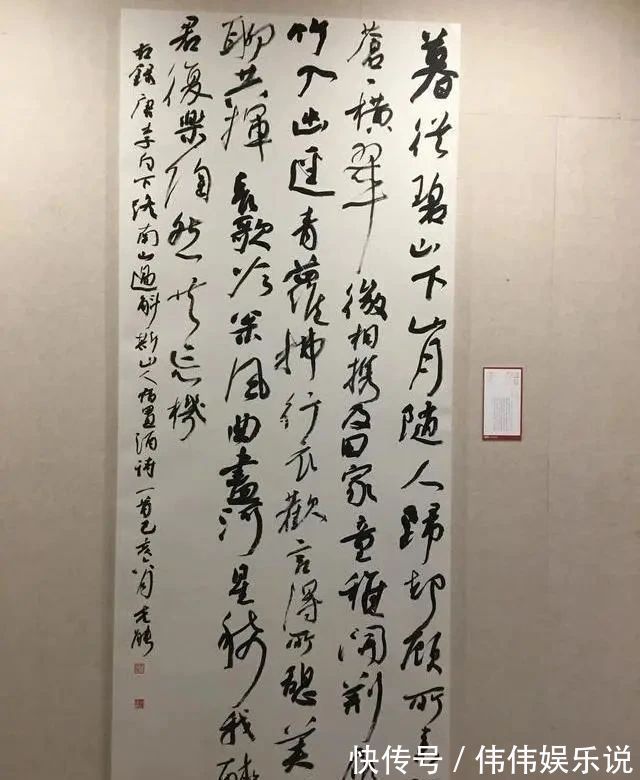 暮從碧山下山月隨人歸却顧所来
蒼々橫翠微相携及田家童稚開荊
竹入幽徑青蘿拂行衣歡言得所憩美
聊共揮長歌吟松風曲盡河星稀我醉
君復樂陶然共忘機
右錄唐李白下終南山過斛斯山人宿置酒詩一首己亥
快传号 / 伟伟娱乐说